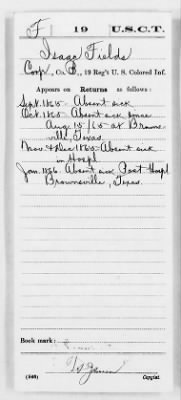 F 19 U.S.C.T.
Isaac Fields
Corp', Co. B, 19 Reg't U. S. Colored Inf.
Appears on Returns as follows:
Sept. 1865 Absent sick
Oct. 1865 Absent sick since
Aug 15/65 at Browns
ville, Texas
Nov & Dec 1865 Absent sick
in Hospl
Jan. 1866 Absent sick Post Hospl
Brownsville, Texas.
Book mark:
(546) Copyist.